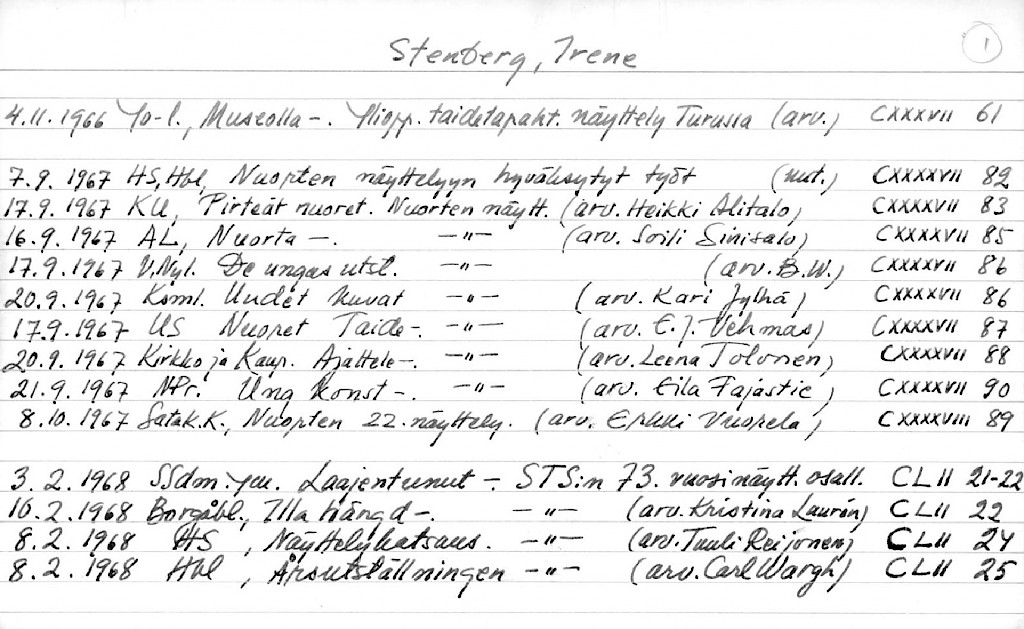 Stenberg, Irene
1
4.11.1966 Yo-l., Museolla -. Yliopp. taidetapaht. näyttely Turussa (arv.) CXXXVII 61
7.9. 1967 HS, Hbl, Nuorten näyttelyyn hyväksytyt työt (uut.) CXXXXVII 82
17.9. 1967 KU, Pirteät nuoret. Nuorten näytt. (arv. Heikki Alitalo) CXXXXVII 83
16.9.1967 AL, Nuorta -. -"- (arv. Soili Sinisalo) CXXXXVII 85
17.9.1967 V.Nyl. De ungas utst. -"- (arv. B.W.) CXXXXVII 86
20.9.1967 Koml. Uudet kuvat -"- (arv. Kari Jylhä) CXXXXVII 86
17.9.1967 US Nuoret Taide-. -"- (arv. E.J. Vehmas) CXXXXVII 87
20.9.1967 Kirkko ja Kaup. Ajattele-. -"- (arv. Leena Tolonen) CXXXXVII 88
21.9.1967 NPr. Ung Konst -. -"- (arv. Eila Pajastie) CXXXXVII 90
8.10.1967 Satak.K., Nuorten 22. näyttely. (arv. Erkki Vuorela) CXXXXVIII 89
3.2.1968 SSdm. ym. Laajentunut -. STS:n 73. vuosinäytt. osall. CLII 21-22
10.2.1968 Borgåbl., Illa hängd -. -"- (arv. Kristina Laurén) CLII 22
8.2.1968 HS, Näyttelykatsaus. -"- (arv. Tuuli Reijonen) CLII 24
8.2.1968 Hbl, Årsutställningen -"- (arv. Carl Wargh) CLII 25